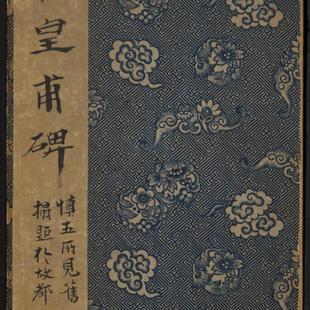 皇甫碑
慎五所見舊
搨題於故都